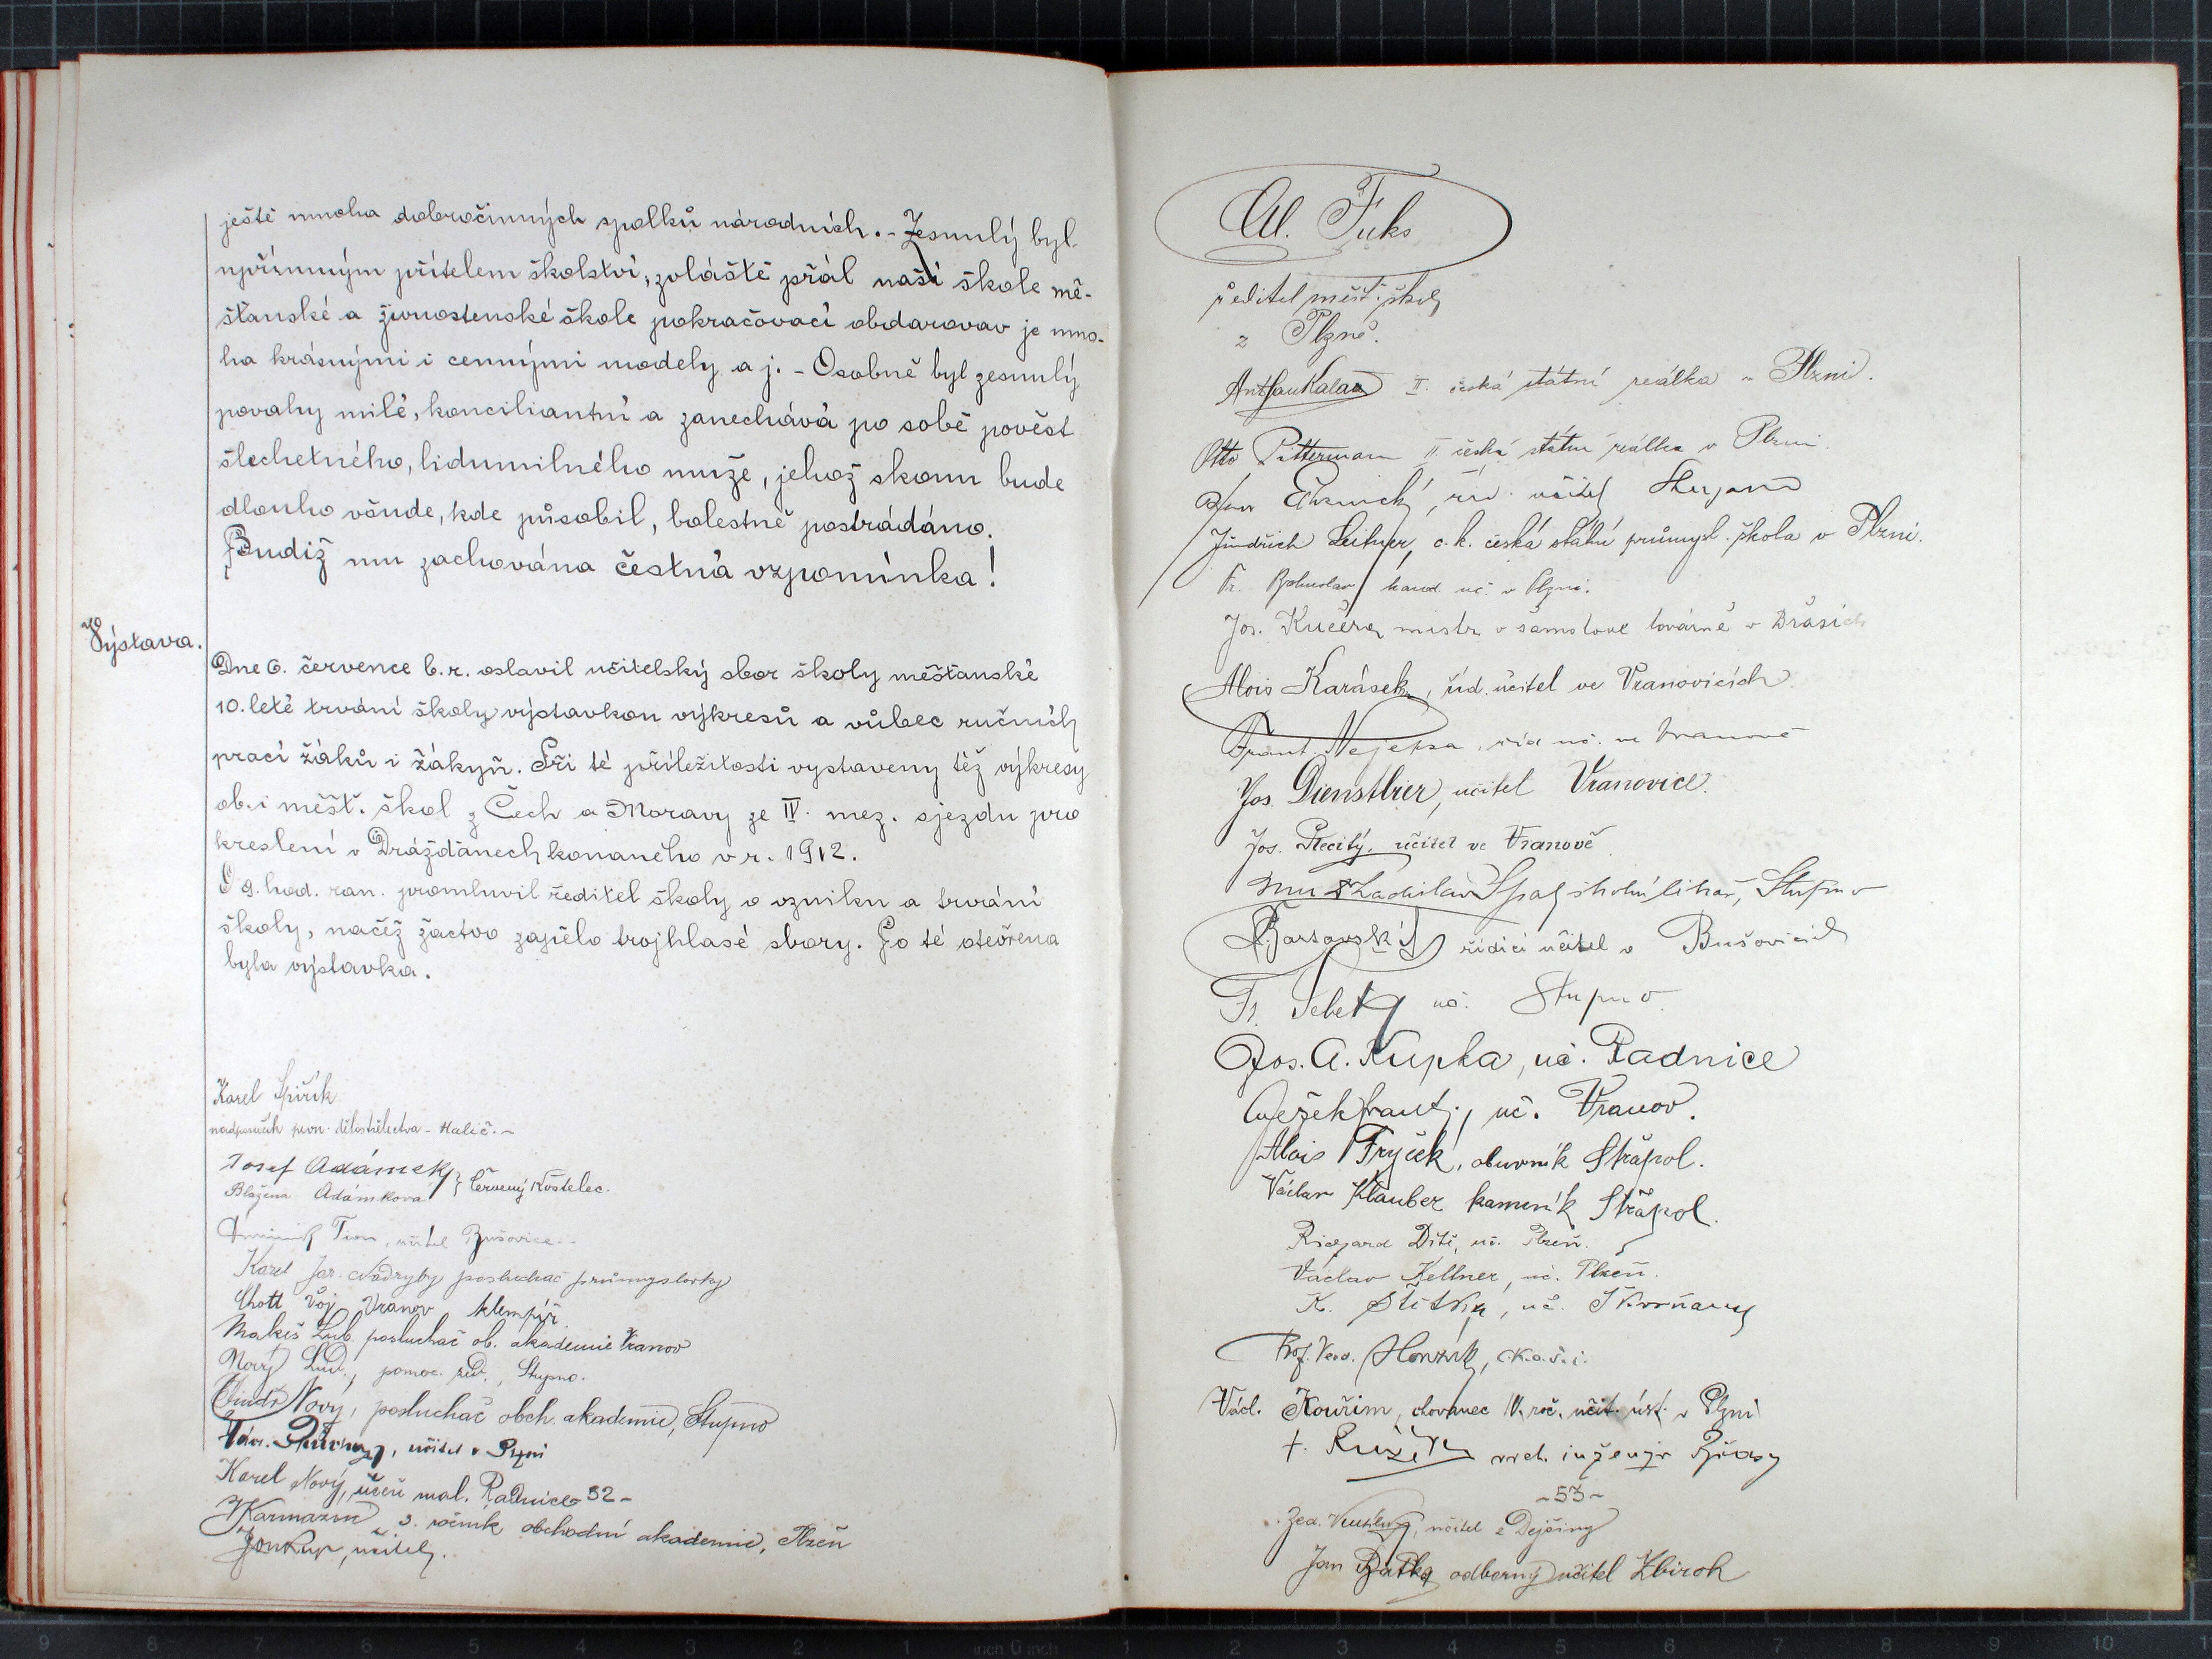 ještě mnoha dobročinných spolků národních. - Zesnulý byl
upřímným přítelem školství, zvláště přál naší škole mě-
šťanské a živnostenské škole pokračovací obdarovav je mno-
ha krásnými i cennými modely a j. - Osobně byl zesnulý
povahy milé, konciliantní a zanechává po sobě pověst
šlechetného, lidumilného muže, jehož skonu bude
dlouho všude, kde působil, bolestně postrádáno.
Budiž mu zachována čestná vzpomínka!
Výstava.
Dne 6. července b.r. oslavil učitelský sbor školy měšťanské
10. leté trvání školy výstavkou výkresů a vůbec ručních
prací žáků i žákyň. Při té příležitosti vystaveny též výkresy
ob. i měšť. škol z Čech a Moravy ze IV. mez. sjezdu pro
kreslení v Drážďanech konaného v r. 1912.
O 9. hod. ran. promluvil ředitel školy o vzniku a trvání
školy, načež žactvo zapělo trojhlasé sbory. Po té otevřena
byla výstavka.
Karel Spiřík
nadporučík pevn. dělostřelectva - Halič. -
Josef Adámek
Blažena Adámková } Červený Kostelec.
Tion, učitel Bušovice. -
Karel Jar. Nadryby posluchač průmyslovky
Chott Voj. Vranov klempíř
Makeš Lub. posluchač ob. akademie Vranov
Nový Lud., pomoc. , Stupno.
Jindř. Nový, posluchač obch. akademie, Stupno
Václ. , učitel v Plzni
Karel Nový, učeň mal. Radnice 52 -
J Karmazin 3. ročník obchodní akademie, Plzeň
Joukup, učitel.
Al. Fuks
ředitel měšť. školy
z Plzně.
Ant. Jan Kalaš II. česká státní reálka v Plzni.
Otto Pitterman II. česká státní reálka v Plzni.
Jan , říd. učitel
Jindřich Leitner, c. k. česká státní průmysl. škola v Plzni.
Fr. Bohuslav uč. v Plzni.
Jos. Kučera mistr v šamotové továrně v Břasích
Alois Karásek, říd. učitel ve Vranovicích.
Frant. Nejepsa, říd uč. ve Vranově
Jos. Dienstbier, učitel Vranovice.
Jos. Plecitý, učitel ve Vranově
Ladislav Stupno
Barsovský řídící učitel v Bušovicích
Fr. Šebek uč. Stupno
Jos. A. Kupka, uč. Radnice
Ježek Frant., uč. Vranov.
Alois Fryček, obuvník Střapol.
Václav Klauber kameník Střapol.
Richard Dítě, uč. Plzeň.
Václav Kellner, uč. Plzeň.
K. Štětka, uč. Škvrňany
Prof. Honzík, c.k.o.š.i.
Václ. Kouřim, chovanec IV. roč. učit. úst. v Plzni
Růžek vrch. inženýr Břasy
- 53 -
Zed. , učitel z Dejšiny
Jan Bátka odborný učitel Zbiroh